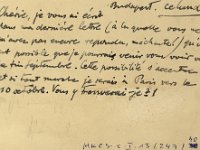 Budapest. le lundi
Chérie, je vous ai écrit
dans ma dernière lettre (à la quelle vous ne
m'avez pas encore repondu, méchante!) qu'il
est possible que je pourrai venir vous voir
fin septembre. Cette possibilité s'accentue
et si tout marche je serais à Paris vers le
10 octobre. Vous y trouverai-je?